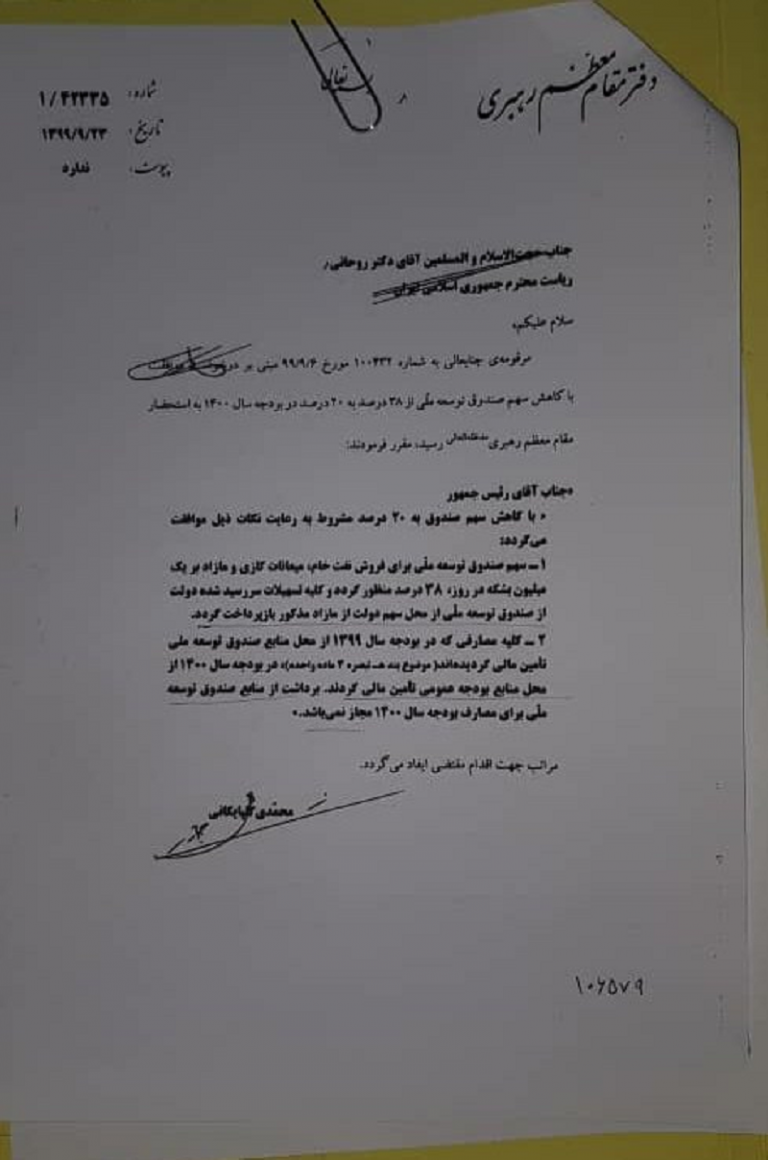 دفتر مقام معظم رهبری
تعالی
شماره: ۱/۴۲۳۳۵
تاریخ: ۱۳۹۹/۹/۲۳
پیوست: ندارد
جناب حجت‌الاسلام و المسلمین آقای دکتر روحانی
ریاست محترم جمهوری اسلامی ایران
سلام علیکم،
مرقومه‌ی جنابعالی به شماره ۱۰۰۴۳۲ مورخ ۹۹/۹/۴ مبنی بر
با کاهش سهم صندوق توسعه ملّی از ۳۸ درصد به ۲۰ درصد در بودجه سال ۱۴۰۰ به استحضار
مقام معظم رهبری مدظله‌العالی رسید، مقرر فرمودند:
«جناب آقای رئیس جمهور
• با کاهش سهم صندوق به ۲۰ درصد مشروط به رعایت نکات ذیل موافقت
می‌گردد:
۱ ــ سهم صندوق توسعه ملّی برای فروش نفت خام، میعانات گازی و مازاد بر یک
میلیون بشکه در روز، ۳۸ درصد منظور گردد و کلیه تسهیلات سررسید شده دولت
از صندوق توسعه ملّی از محل سهم دولت از مازاد مذکور بازپرداخت گردد.
۲ ــ کلیه مصارفی که در بودجه سال ۱۳۹۹ از محل منابع صندوق توسعه ملی
تأمین مالی گردیده‌اند( موضوع بند هـ تبصره ۴ ماده واحده)، در بودجه سال ۱۴۰۰ از
محل منابع بودجه عمومی تأمین مالی گردند. برداشت از منابع صندوق توسعه
ملّی برای مصارف بودجه سال ۱۴۰۰ مجاز نمی‌باشد.»
مراتب جهت اقدام مقتضی ایفاد می‌گردد.
محمّدی گلپایگانی
۱۰۶۵۷۹